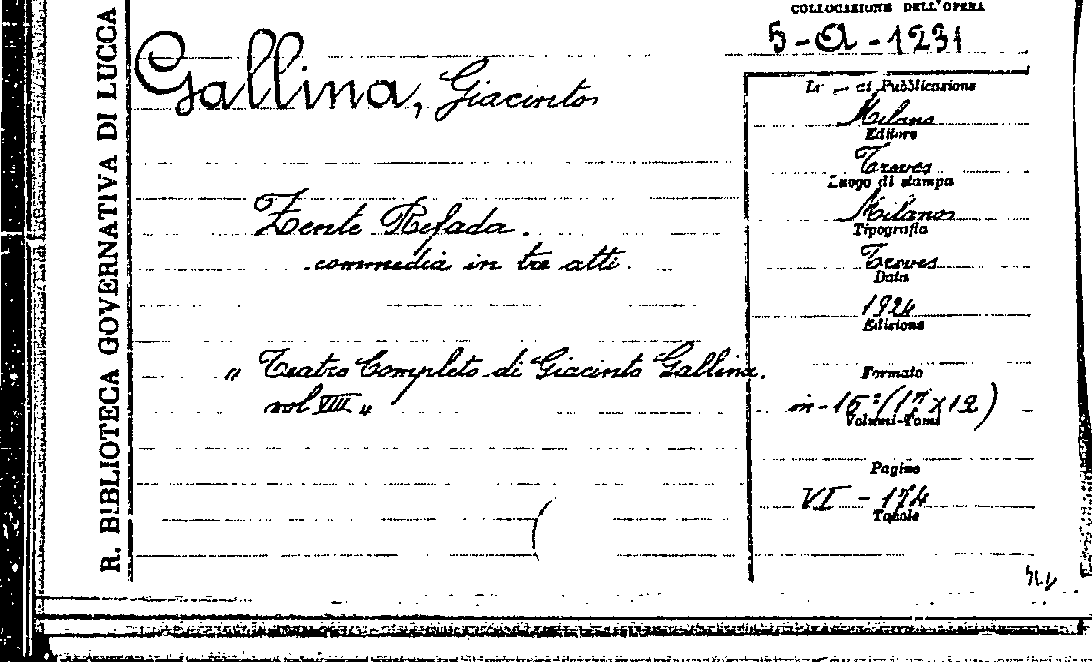 R. BIBLIOTECA GOVERNATIVA DI LUCCA
COLLOCAZIONE DELL'OPERA
5-a-1231
Gallina, Giacinto
Zente Refada.
commedia in tre atti.
" Teatro Completo di Giacinto Gallina.
vol VIII "
di Pubblicazione
Milano
Editore
Treves
Luogo di stampa
Milano
Tipografia
Treves
Data
Edizione
Formato
in-16°(17x12)
Volumi-Tomi
Pagine
VI - 174
Tavole